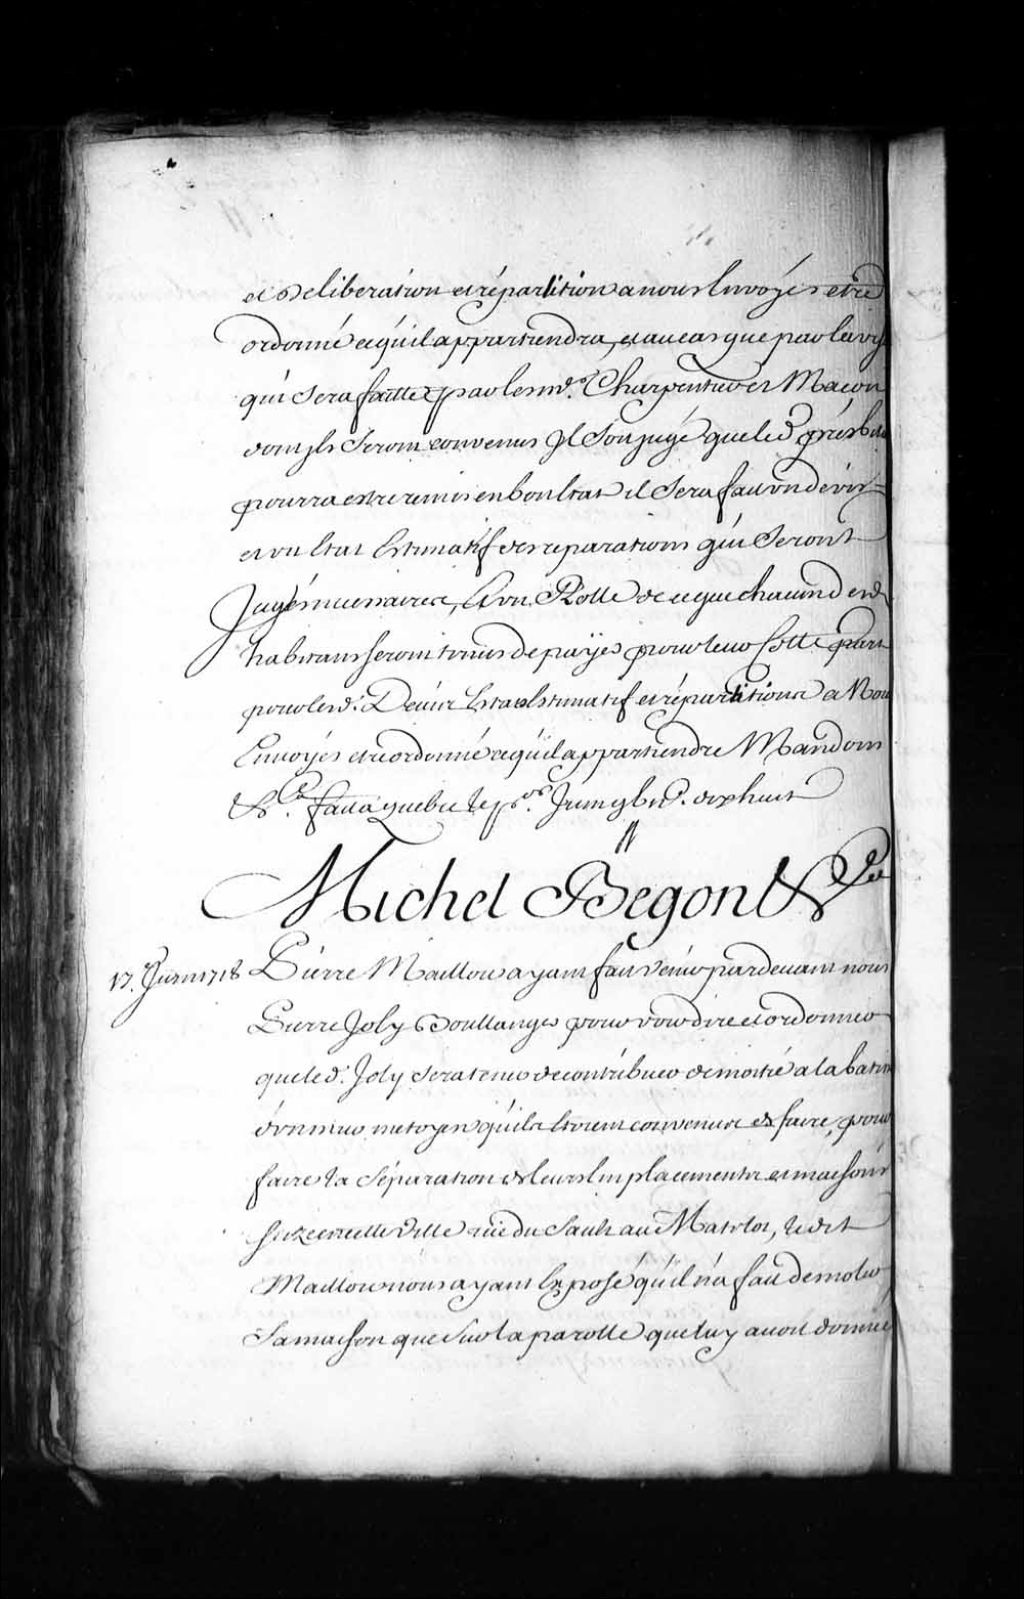 et deliberation et répartition a nous Envoyés etre
ordonné ce qu'il appartiendra, et au cas que par la vis
qui sera faitte par lesd. Charpentier et Macon
dont ils seront convenus il soit jugé que led. présbit
pourra estre remis en bon Etat il sera fait un dévis
et un Etat Estimatif des reparations qui seront
Jugés necessaires, Et un Rolle de ce que chacun desd
habitans seront tenus de payer pour leur Cotte part
pour lesd. Devis Etat Estimatif et répartitions a Nou
Envoyés etre ordonné ce qu'il appartiendra Mandons
&c. fait a quebec le Juin dixhuit
Michel Bëgon &c
17. Juin 1718 Pierre Maillou ayant fait venir pardevant nous
Pierre Joly Boullanger pour voir dire et ordonner
que led. Joly sera tenu de contribuer de moitié a la batis
d'un mur metoyen qu'ils etoient convenus de faire, pour
faire la séparation de leurs Emplacements et maisons
scize en cette ville rüe du Sault au Matelot, ledit
Maillou nous ayant Exposé qu'il n'a fait demolir
sa maison que sur la parolle que luy avoit donnée